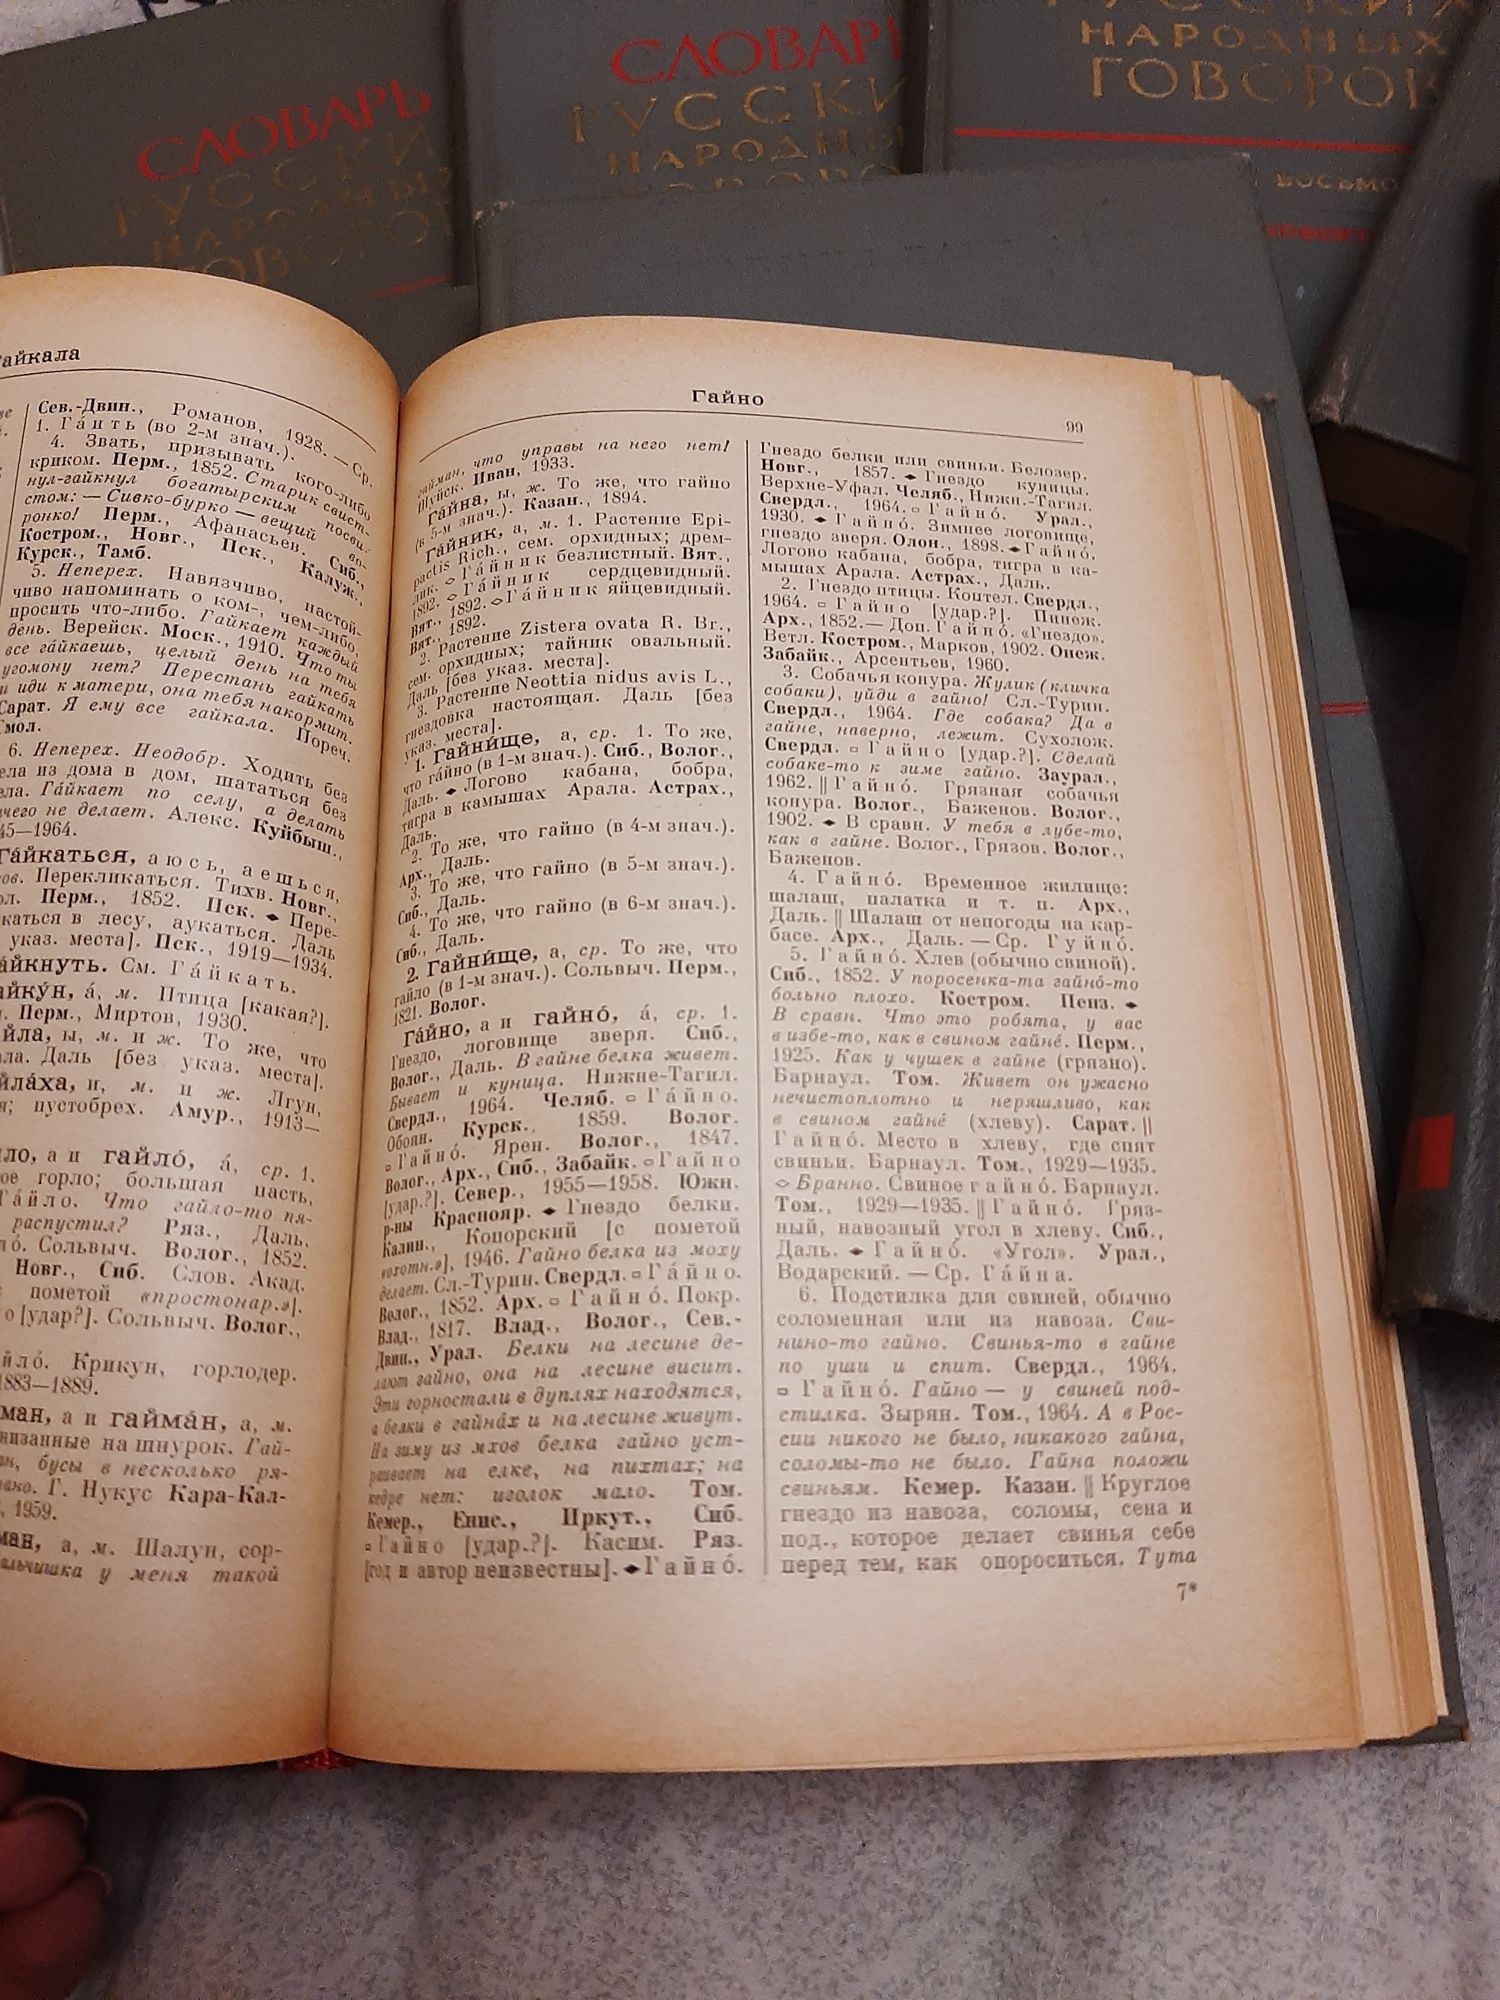 СЛОВАРЬ
РУССКИ
НАРОДНЫХ
ГОВОРО
СЛОВАРЬ
РУССКИ
НАРОДНЫ
ГОВОРО
РУССКИХ
НАРОДНЫХ
ГОВОРО
ВОСЬМО
айкала
Сев.-Двин., Романов, 1928. — Ср.
1. Га́ить (во 2-м знач.).
4. Звать, призывать кого-либо
криком. Перм., 1852. Старик свист-
нул-гайкнул богатырским посви-
стом: — Сивко-бурко — вещий во-
ронко! Перм., Афанасьев. Сиб.,
Костром., Новг., Пск., Калуж.,
Курск., Тамб.
5. Неперех. Навязчиво, настой-
чиво напоминать о ком-, чем-либо,
просить что-либо. Гайкает каждый
день. Верейск. Моск., 1910. Что ты
все га́йкаешь, целый день на тебя
угомону нет? Перестань гайкать
и иди к матери, она тебя накормит.
Сарат. Я ему все гайкала. Пореч.
Смол.
6. Неперех. Неодобр. Ходить без
ела из дома в дом, шататься без
ела. Га́йкает по селу, а делать
ичего не делает. Алекс. Куйбыш.,
45—1964.
Га́йкаться, аюсь, аешься,
ов. Перекликаться. Тихв. Новг.,
ол. Перм., 1852. Пск. ◆ Пере-
каться в лесу, аукаться. Даль
указ. места]. Пск., 1919—1934.
а́йкнуть. См. Га́йкать.
айку́н, а́, м. Птица [какая?].
Перм., Миртов, 1930.
йла, ы, м. и ж. То же, что
ала. Даль [без указ. места].
йла́ха, и, м. и ж. Лгун,
н; пустобрех. Амур., 1913—
ло, а и гайло́, а́, ср. 1.
ое горло; большая пасть,
Га́йло. Что гайло-то ля-
распустил? Ряз., Даль.
ло́. Сольвыч. Волог., 1852.
Новг., Сиб. Слов. Акад.
пометой «простонар.»].
о [удар?]. Сольвыч. Волог.,
йло́. Крикун, горлодер.
1883—1889.
ман, а и гайма́н, а, м.
низанные на шнурок. Гай-
ан, бусы в несколько ря-
вано. Г. Нукус Кара-Кал-
, 1959.
ман, а, м. Шалун, сор-
альчишка у меня такой
Гайно
99
гайман, что управы на него нет!
Шуйск. Иван, 1933.
Га́йна, ы, ж. То же, что гайно
(в 5-м знач.). Казан., 1894.
Га́йник, а, м. 1. Растение Epi-
pactis Rich., сем. орхидных; дрем-
лик. ◇ Га́йник безлистный. Вят.,
1892. ◇ Га́йник сердцевидный.
Вят., 1892. ◇ Га́йник яйцевидный.
Вят., 1892.
2. Растение Zistera ovata R. Br.,
сем. орхидных; тайник овальный.
Даль [без указ. места].
3. Растение Neottia nidus avis L.,
гнездовка настоящая. Даль [без
указ. места].
1. Гайни́ще, а, ср. 1. То же,
что га́йно (в 1-м знач.). Сиб., Волог.,
Даль. ◆ Логово кабана, бобра,
тигра в камышах Арала. Астрах.,
Даль.
2. То же, что гайно (в 4-м знач.).
Арх., Даль.
3. То же, что гайно (в 5-м знач.).
Сиб., Даль.
4. То же, что гайно (в 6-м знач.).
Сиб., Даль.
2. Гайни́ще, а, ср. То же, что
гайло (в 1-м знач.). Сольвыч. Перм.,
1821. Волог.
Га́йно, а и гайно́, а́, ср. 1.
Гнездо, логовище зверя. Сиб.,
Волог., Даль. В гайне белка живет.
Бывает и куница. Нижне-Тагил.
Свердл., 1964. Челяб. ▫ Га́йно.
Обоян. Курск., 1859. Волог.
▫ Гайно́. Ярен. Волог., 1847.
Волог., Арх., Сиб., Забайк. ▫ Гайно
[удар.?]. Север., 1955—1958. Южн.
р-ны Краснояр. ◆ Гнездо белки.
Калин., Копорский [с пометой
«охотн.»], 1946. Гайно белка из моху
делает. Сл.-Турин. Свердл. ▫ Га́йно.
Волог., 1852. Арх. ▫ Гайно́. Покр.
Влад., 1817. Влад., Волог., Сев.-
Двин., Урал. Белки на лесине де-
лают гайно, она на лесине висит.
Эти горностали в дуплях находятся,
а белки в гайна́х и на лесине живут.
На зиму из мхов белка гайно уст-
раивает на елке, на пихтах; на
кедре нет: иголок мало. Том.
Кемер., Енис., Иркут., Сиб.
▫ Гайно [удар.?]. Касим. Ряз.
[год и автор неизвестны]. ◆ Гайно́.
Гнездо белки или свиньи. Белозер.
Новг., 1857. ◆ Гнездо куницы.
Верхне-Уфал. Челяб., Нижн.-Тагил.
Свердл., 1964. ▫ Гайно́. Урал.,
1930. ◆ Гайно́. Зимнее логовище,
гнездо зверя. Олон., 1898. ◆ Гайно́.
Логово кабана, бобра, тигра в ка-
мышах Арала. Астрах., Даль.
2. Гнездо птицы. Коптел. Свердл.,
1964. ▫ Гайно [удар.?]. Пинеж.
Арх., 1852. — Доп. Гайно́. «Гнездо».
Ветл. Костром., Марков, 1902. Онеж.
Забайк., Арсентьев, 1960.
3. Собачья конура. Жулик (кличка
собаки), уйди в гайно! Сл.-Турин.
Свердл., 1964. Где собака? Да в
гайне, наверно, лежит. Сухолож.
Свердл. ▫ Гайно [удар.?]. Сделай
собаке-то к зиме гайно. Заурал.,
1962. || Гайно́. Грязная собачья
конура. Волог., Баженов. Волог.,
1902. ◆ В сравн. У тебя в лубе-то,
как в гайне. Волог., Грязов. Волог.,
Баженов.
4. Гайно́. Временное жилище:
шалаш, палатка и т. п. Арх.,
Даль. || Шалаш от непогоды на кар-
басе. Арх., Даль. — Ср. Гуйно́.
5. Гайно́. Хлев (обычно свиной).
Сиб., 1852. У поросенка-та гайно́-то
больно плохо. Костром. Пенз. ◆
В сравн. Что это робята, у вас
в избе-то, как в свином гайне́. Перм.,
1925. Как у чушек в гайне (грязно).
Барнаул. Том. Живет он ужасно
нечистоплотно и неряшливо, как
в свином гайне́ (хлеву). Сарат. ||
Гайно́. Место в хлеву, где спят
свиньи. Барнаул. Том., 1929—1935.
◇ Бранно. Свиное гайно́. Барнаул.
Том., 1929—1935. || Гайно́. Гряз-
ный, навозный угол в хлеву. Сиб.,
Даль. ◆ Гайно́. «Угол». Урал.,
Водарский. — Ср. Га́йна.
6. Подстилка для свиней, обычно
соломенная или из навоза. Сви-
нино-то гайно. Свинья-то в гайне
по уши и спит. Свердл., 1964.
▫ Гайно́. Гайно — у свиней под-
стилка. Зырян. Том., 1964. А в Рос-
сии никого не было, никакого гайна,
соломы-то не было. Гайна положи
свиньям. Кемер. Казан. || Круглое
гнездо из навоза, соломы, сена и
под., которое делает свинья себе
перед тем, как опороситься. Тута
7*